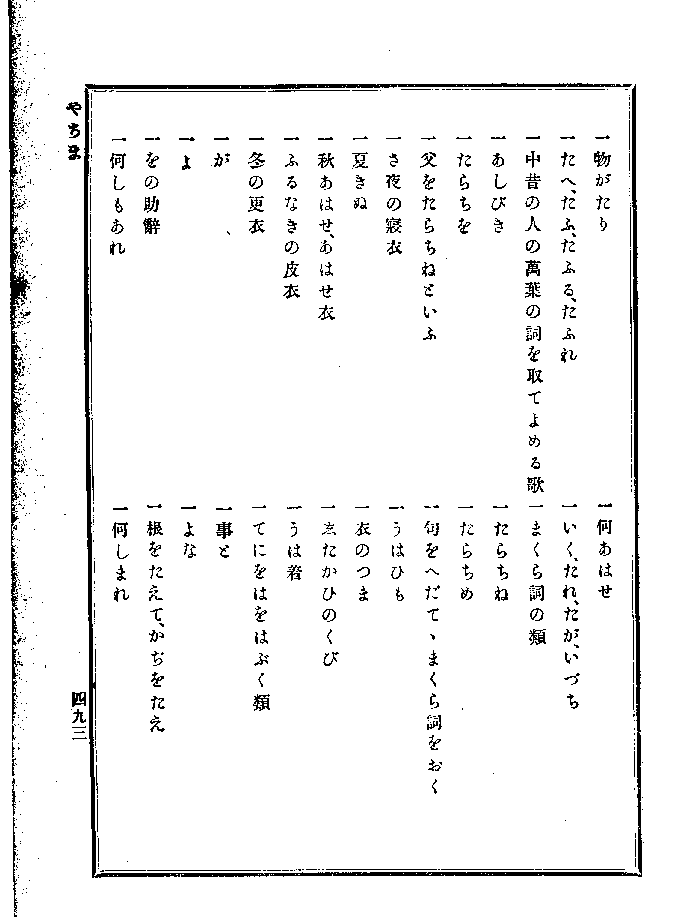 一物がたり
一たへ、たふ、たふる、たふれ
一中昔の人の萬葉の詞を取てよめる歌
一あしびき
一たらちを
一父をたらちねといふ
一さ夜の寝衣
一夏きぬ
一秋あはせ、あはせ衣
一ふるなきの皮衣
一冬の更衣
一が
一よ
一をの助辭
一何しもあれ
一何あはせ
一いく、たれ、たが、いづち
一まくら詞の類
一たらちね
一たらちめ
一句をへだてゝまくら詞をおく
一うはひも
一衣のつま
一ゑたかひのくび
一うは着
一てにをはをはぶく類
一事と
一よな
一根をたえて、かぢをたえ
一何しまれ
やちまた
四九三